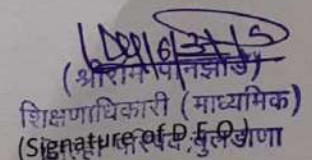 (श्रीराम पानझाडे)
शिक्षणाधिकारी (माध्यमिक)
(Signature of D.E.O.) परिषद, बुलडाणा